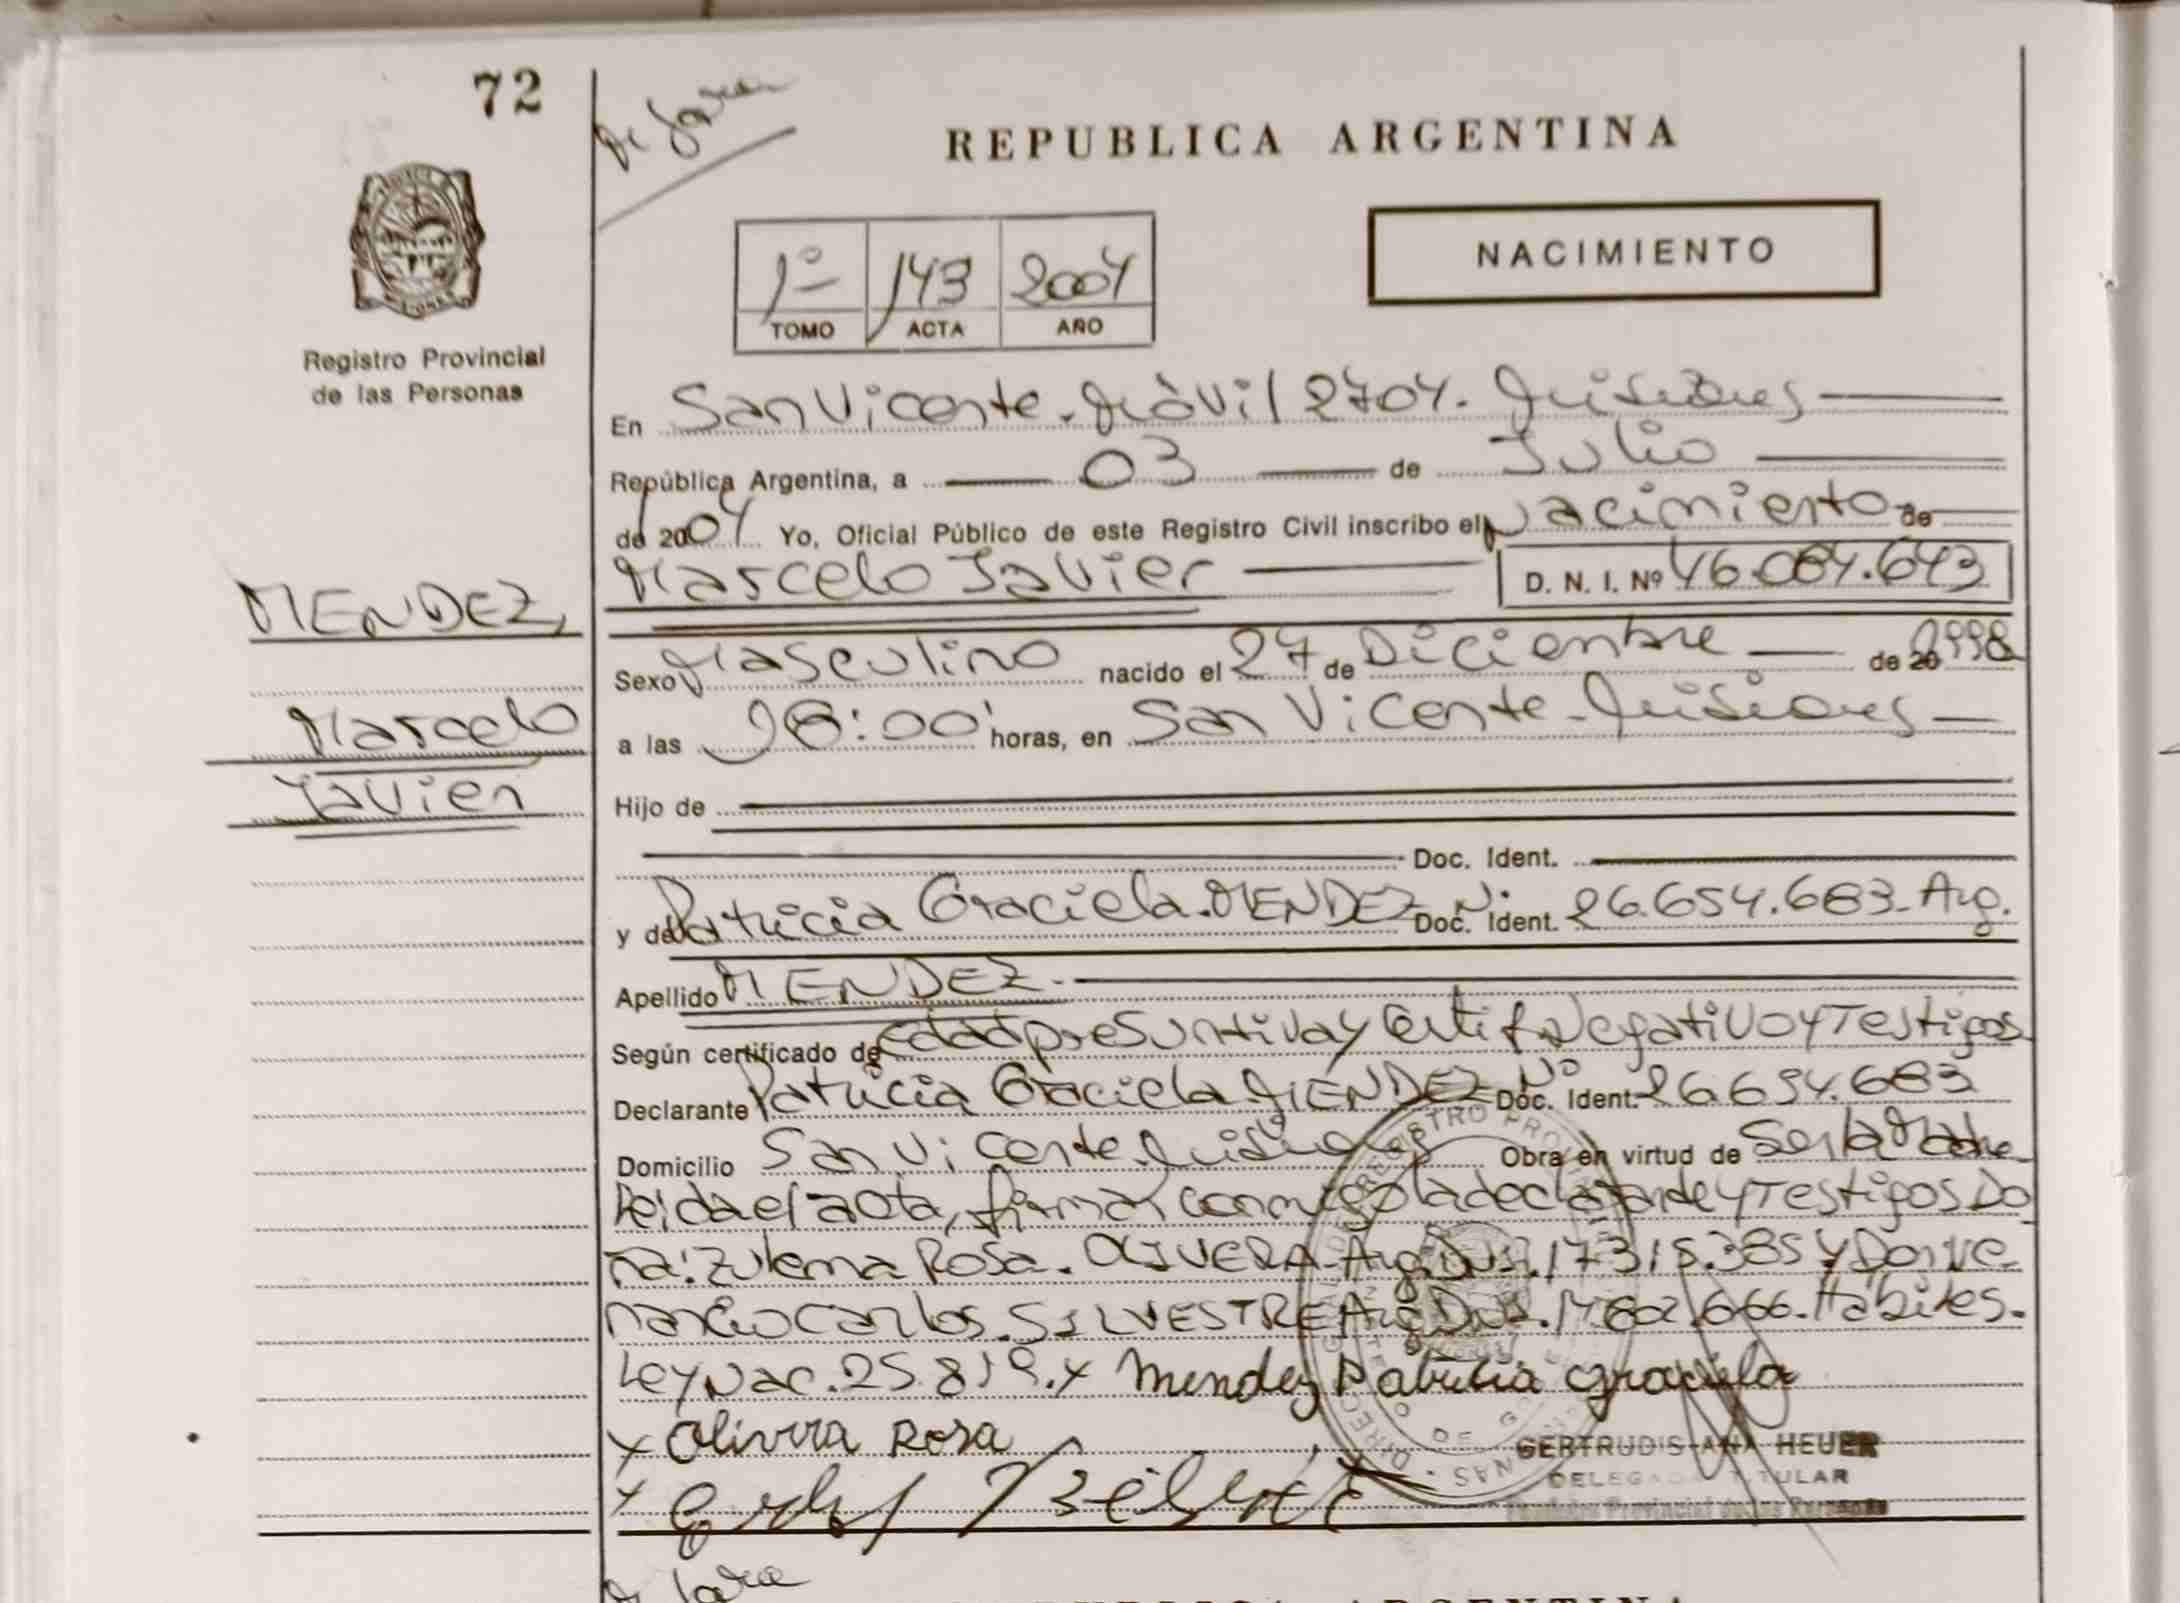 72
REPUBLICA ARGENTINA
NACIMIENTO
1º 143 2004
TOMO ACTA AÑO
Registro Provincial
de las Personas
En San Vicente. Móvil 2704. Misiones
República Argentina, a 03 de Julio
de 2004 Yo, Oficial Público de este Registro Civil inscribo el Nacimiento de
Marcelo Javier D. N. I. Nº 46.084.643
MENDEZ,
Marcelo
Javier
Sexo Masculino nacido el 27 de Diciembre de 20 1998
a las 18:00' horas, en San Vicente. Misiones
Hijo de
Doc. Ident.
y de Patricia Graciela. MENDEZ Nº Doc. Ident. 26.654.683. Arg.
Apellido MENDEZ.
Según certificado de edad presuntiva y Certif. Negativo y Testigos
Declarante Patricia Graciela MENDEZ Nº Doc. Ident. 26.654.683
Domicilio San Vicente. Misiones Obra en virtud de Ser la Madre
Leida el acta, firman conmigo la declarante y Testigos Do
ña: Zulema Rosa. OLIVERA. Arg. DNI. 17.315.385 y Don Ve-
nancio Carlos. SILVESTRE Arg. DNI. Hábiles.
Ley Nac. 25.819. x Mendez Patricia Graciela
x Olivera Rosa
x
GERTRUDIS ANA HEUER
DELEGADA TITULAR
Registro Provincial de las Personas
REPUBLICA ARGENTINA